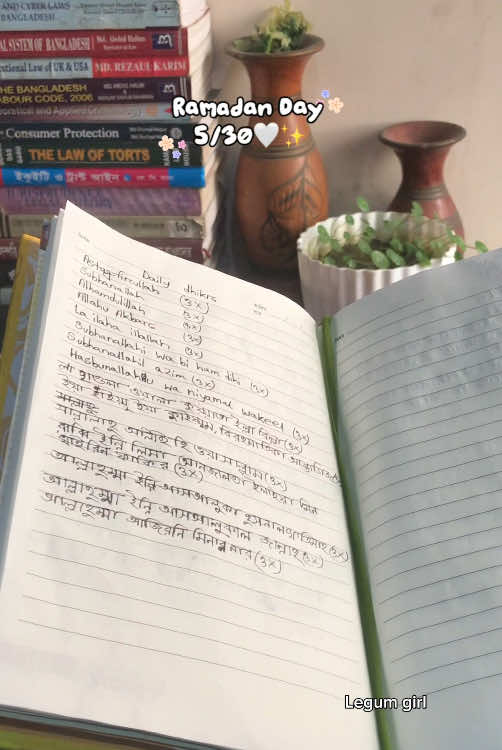 AND CYBER LAWS
BANGLADESH
AL SYSTEM OF BANGLADESH Md. Abdul Halim
utional Law of UK & USA MD. REZAUL KARIM
HE BANGLADESH
ABOUR CODE, 2006
Consumer Protection
THE LAW OF TORTS
ইকুইটি ও ট্রাস্ট আইন
Ramadan Day
5/30
Daily dhikrs
Astaggfirullah (3x)
Subhanallah (3x)
Alhamdulillah (3x)
Allahu Akbar (3x)
La ilaha illallah (3x)
Subhanallahi wa bi ham dihi (3x)
Subhanallahil azim (3x)
Hasbunallahu wa niyamal wakeel (3x)
লা হাওলা ওয়ালা কুওয়াতা ইল্লা বিল্লা (3x)
ইয়া হাইয়ু ইয়া কাইয়ুম, বিরহমাতিকা
সাল্লাল্লাহু আলাইহি ওয়া সাল্লাম (3x)
রাব্বি ইন্নি লিমা আনজালতা ইলাইয়া মিন
খাইরিন ফাকির (3x)
আল্লাহুম্মা ইন্নি আসআলুকা হুসনাল খাতিমাহ (3x)
আল্লাহুম্মা ইন্নি আসআলুকাল জান্নাহ (3x)
আল্লাহুম্মা আজিরনি মিনান নার (3x)
Legum girl